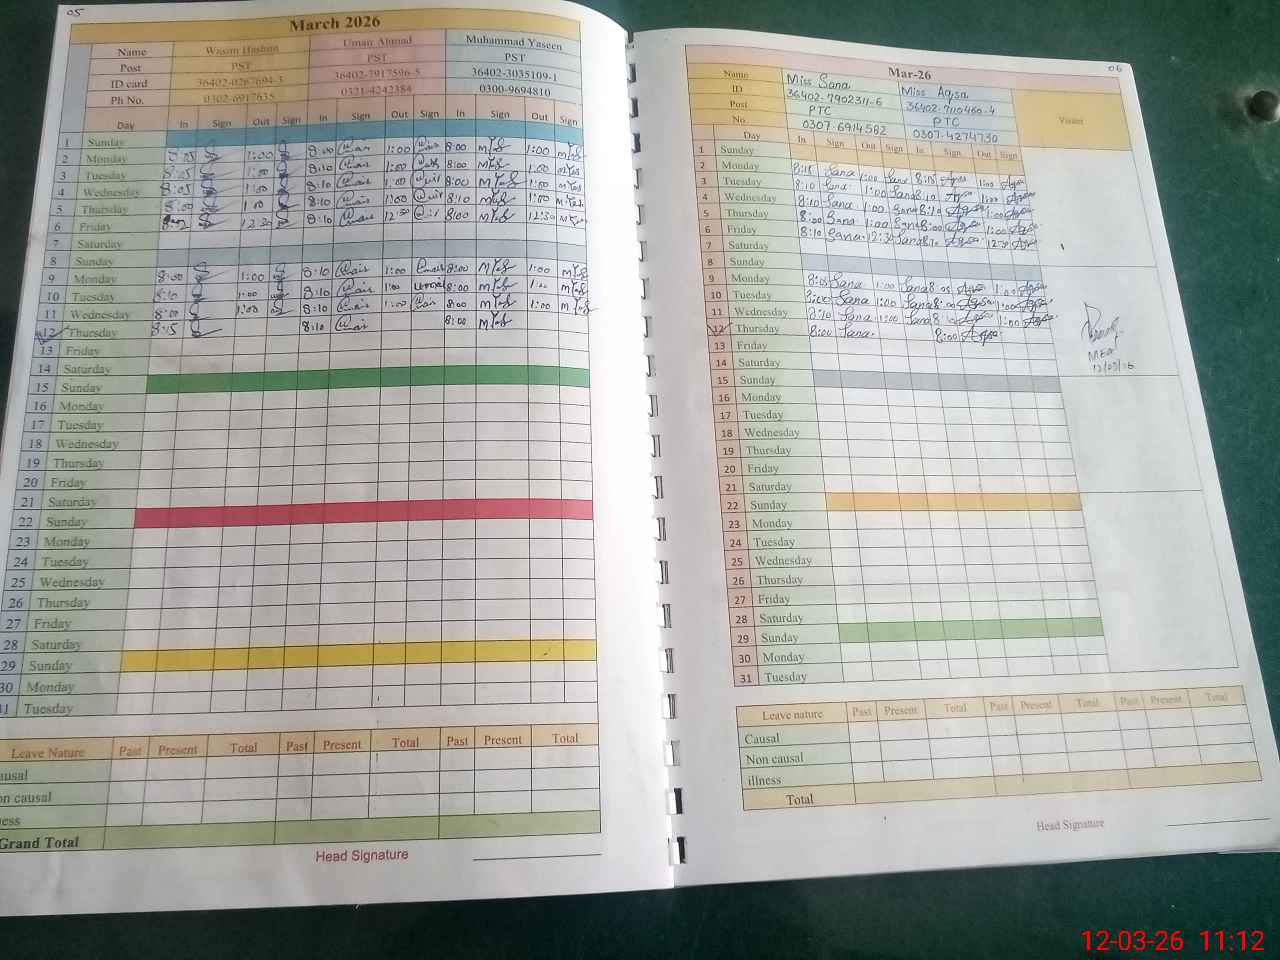 05
March 2026
Name Wasim Hashim Umair Ahmad Muhammad Yaseen
Post PST PST PST
ID card 36402-0267694-3 36402-7917596-5 36402-3035109-1
Ph No. 0302-6917635 0321-4242384 0300-9694810
Day In Sign Out Sign In Sign Out Sign In Sign Out Sign
1 Sunday
2 Monday 8:05 1:00 8:00 1:00 8:00 1:00
3 Tuesday 8:05 1:00 8:10 1:00 8:00 1:00
4 Wednesday 8:05 1:00 8:10 1:00 8:00 1:00
5 Thursday 8:00 1:00 8:10 1:00 8:10 1:00
6 Friday 12:30 8:10 12:30 8:00 12:30
7 Saturday
8 Sunday
9 Monday 8:00 1:00 8:10 1:00 8:00 1:00
10 Tuesday 8:10 1:00 8:10 1:00 8:00 1:00
11 Wednesday 8:00 1:00 8:10 1:00 8:00 1:00
12 Thursday 8:15 8:10 8:00
13 Friday
14 Saturday
15 Sunday
16 Monday
17 Tuesday
18 Wednesday
19 Thursday
20 Friday
21 Saturday
22 Sunday
23 Monday
24 Tuesday
25 Wednesday
26 Thursday
27 Friday
28 Saturday
29 Sunday
30 Monday
31 Tuesday
Leave Nature Past Present Total Past Present Total Past Present Total
ausal
on causal
ness
Grand Total
Head Signature
06
Mar-26
Name Miss Sana Miss Aqsa Visiter
ID 36402-7902311-6 36402-7110460-4
Post PTC PTC
No. 0307-6914582 0307-4274730
Day In Sign Out Sign In Sign Out Sign
1 Sunday
2 Monday 8:15 Sana 1:00 Sana 8:15 Aqsa 1:00 Aqsa
3 Tuesday 8:10 Sana 1:00 Sana 8:10 1:00 Aqsa
4 Wednesday 8:10 Sana 1:00 Sana 8:10 Aqsa 1:00 Aqsa
5 Thursday 8:00 Sana 1:00 Sana 8:00 Aqsa 1:00 Aqsa
6 Friday 8:10 Sana 12:30 Sana 8:10 Aqsa 12:30 Aqsa
7 Saturday
8 Sunday
9 Monday 8:05 Sana 1:00 Sana 8:05 Aqsa 1:00 Aqsa
10 Tuesday 8:00 Sana 1:00 Sana 8:00 Aqsa 1:00 Aqsa
11 Wednesday 8:10 Sana 1:00 Sana 8:10 Aqsa 1:00 Aqsa
12 Thursday 8:00 Sana 8:00 Aqsa
13 Friday
14 Saturday
15 Sunday
16 Monday
17 Tuesday
18 Wednesday
19 Thursday
20 Friday
21 Saturday
22 Sunday
23 Monday
24 Tuesday
25 Wednesday
26 Thursday
27 Friday
28 Saturday
29 Sunday
30 Monday
31 Tuesday
MEA
12/03/26
Leave nature Past Present Total Past Present Total Past Present Total
Causal
Non causal
illness
Total
Head Signature
12-03-26 11:12